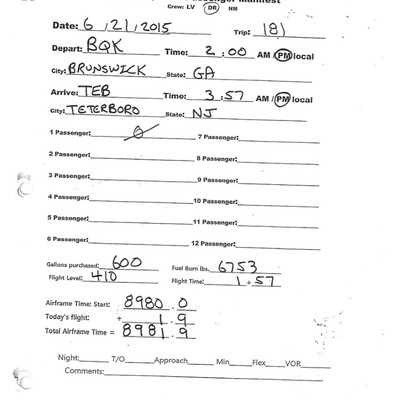 Passenger Manifest
Crew: LV DR NM
Date: 6 / 21 / 2015 Trip: 181
Depart: BQK Time: 2 : 00 AM / PM local
City: BRUNSWICK State: GA
Arrive: TEB Time: 3 : 57 AM / PM local
City: TETERBORO State: NJ
1 Passenger: 0 7 Passenger:
2 Passenger: 8 Passenger:
3 Passenger: 9 Passenger:
4 Passenger: 10 Passenger:
5 Passenger: 11 Passenger:
6 Passenger: 12 Passenger:
Gallons purchased: 600 Fuel Burn lbs. 6753
Flight Level: 410 Flight Time: 1 + 57
Airframe Time: Start: 8980 . 0
Today's flight: + 1 . 9
Total Airframe Time = 8981 . 9
Night: T/O Approach Min Flex VOR
Comments: